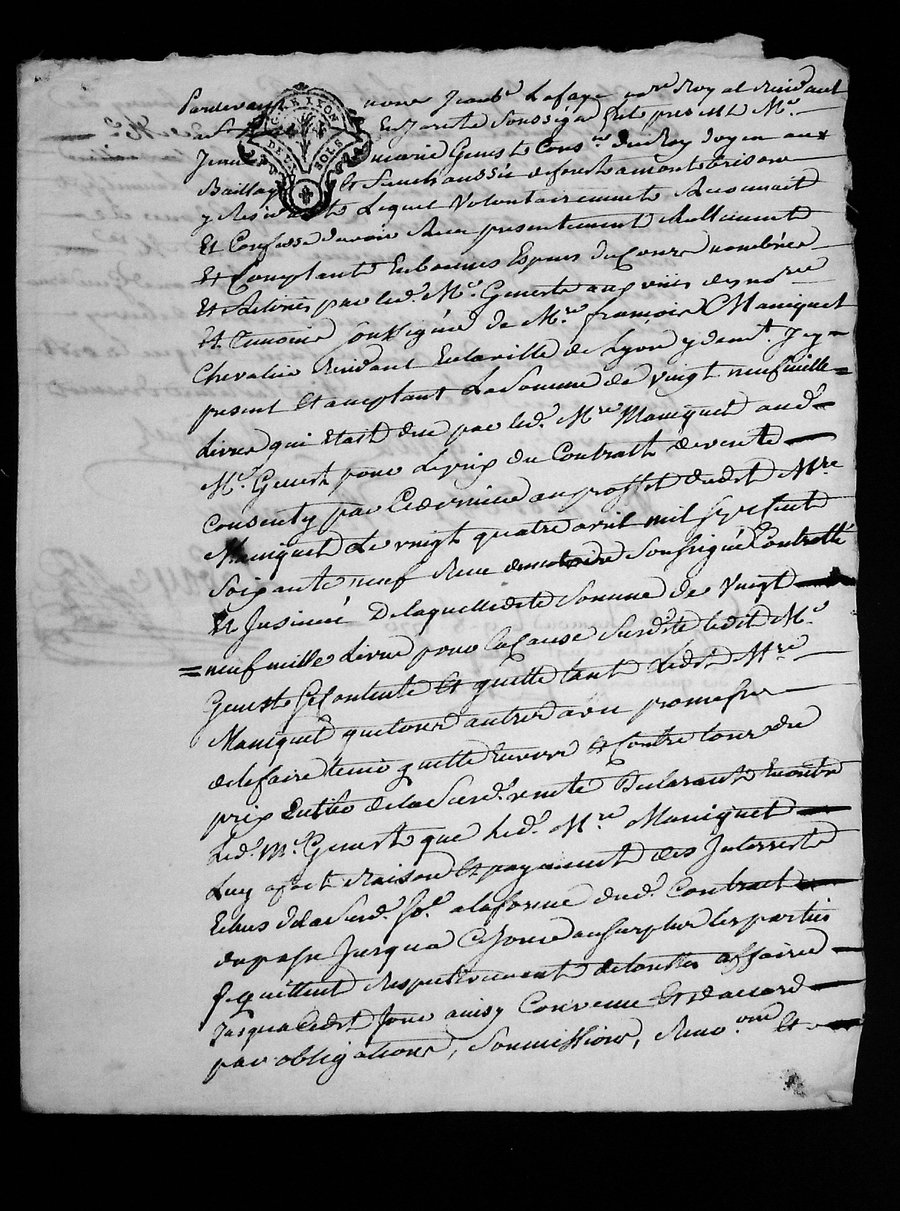 Pardevant nous Jean Bt. Lafaye nore. Royal Residant
en Jarets Soussigné fut present Mr.
Jean marie Genest Consr. du Roy doyen aux
Bailliage et Senechaussée de forets a montbrison
y Residant Lequel Volontairement Reconnoit
Et Confesse d'avoir Reçu presentement Reellement
Et Comptant En bonnes Especes du Cours nombrées
Et delivrées par led. Mr. Geneste aux vües des nore.
Et temoins soussignés de Mre. françois Maniquet
Chevalier Residant En la ville de Lyon y demt. Icy
present Et acceptant La Somme de Vingt neuf mille =
Livres qui Etait due par led. Mre. Maniquet aud.
Mr. Genest pour Le prix du Contratt de vente
Consenty par Ce dernier au proffit dudit Mre
Maniquet Le vingt quatre avril mil sept cent
Soixante neuf Reçu du notaire Soussigné Controllé
Et Insinué De laquelle dite Somme de Vingt
= neuf mille Livres pour la Cause Susdite ledit Mr.
Geneste se Contente Et quitte tant Ledit Mre
Maniquet que tous autres avec promesse
de le faire tenir quitte Envers Et Contre tous du
prix Entier de la Susd. vente Declarant En outre
Led. Mr. Genest que Led. Mre Maniquet
Luy a fait Raison Et payement des Interrests
Echus de la Susd. So. a la forme dud. Contract
du passé Jusqu'a Ce Jour au Surplus les parties
se quittent Respectivement de toutes affaires
Jusqua Cedit Jour ainsy Convenu Et d'accord
par obligations, Soumissions, Renon. Et
G. DE LYON
DEUX SOLS